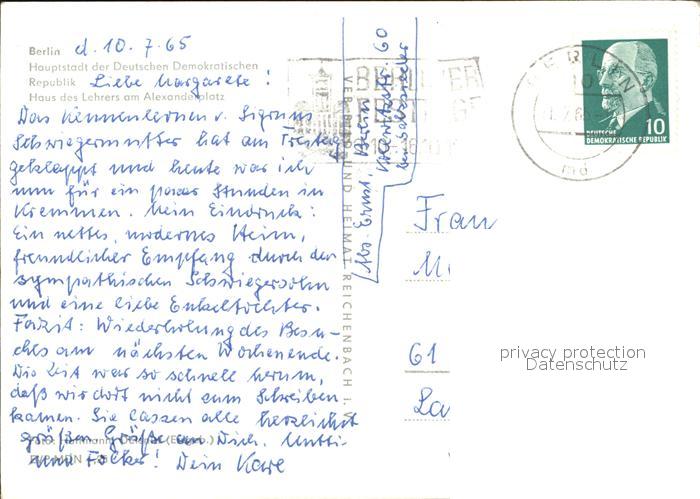 Berlin d. 10.7.65
Hauptstadt der Deutschen Demokratischen
Republik Liebe Margarete!
Haus des Lehrers am Alexanderplatz
Das Kennenlernen v. Sigruns
Schwiegermutter hat am Freitag
geklappt und heute war ich
nun für ein paar Stunden in
Kremmen. Mein Eindruck:
Ein nettes, modernes Heim,
freundlicher Empfang durch den
sympathischen Schwiegersohn
und eine liebe Enkeltochter.
Fazit: Wiederholung des Besu-
ches am nächsten Wochenende.
Die Zeit war so schnell herum,
daß wir dort nicht zum Schreiben
kamen. Sie lassen alle herzlichst
grüßen Grüße an Dich, Mutti
und Dein
VEB BILD UND HEIMAT REICHENBACH i. V.
Berlin
60
BERLINER
BERLIN
10
DEUTSCHE
DEMOKRATISCHE REPUBLIK
10
Frau
M
61
La
privacy protection
Datenschutz